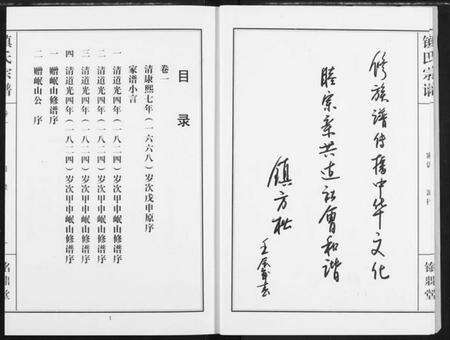 镇氏宗谱
修族谱传播中华文化
睦宗亲共建社会和谐
镇方松
目录
卷一
清康熙七年（一六六八）岁次戊申原序
家谱小言
一 清道光四年（一八二四）岁次甲申岷山修谱序
二 清道光四年（一八二四）岁次甲申岷山修谱序
三 清道光四年（一八二四）岁次甲申岷山修谱序
四 清道光四年（一八二四）岁次甲申岷山修谱序
一 赠岷山修谱序
二 赠岷山公 序
镇氏宗谱
1